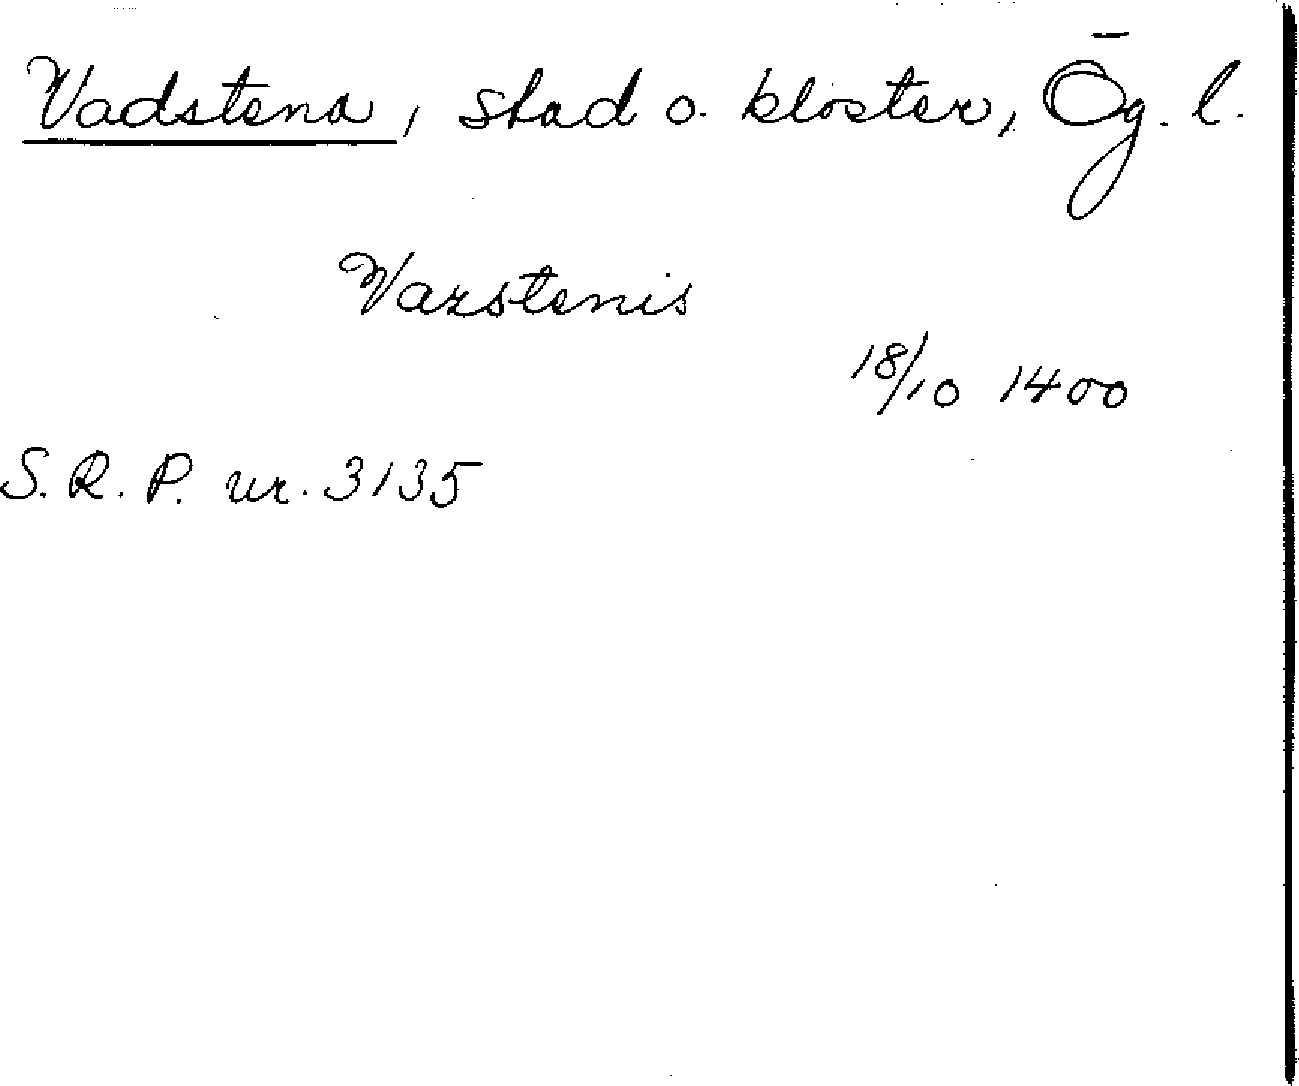 Vadstena, stad o. kloster, Ög. l.
Vazstenis
18/10 1400
S.R.P. nr. 3135